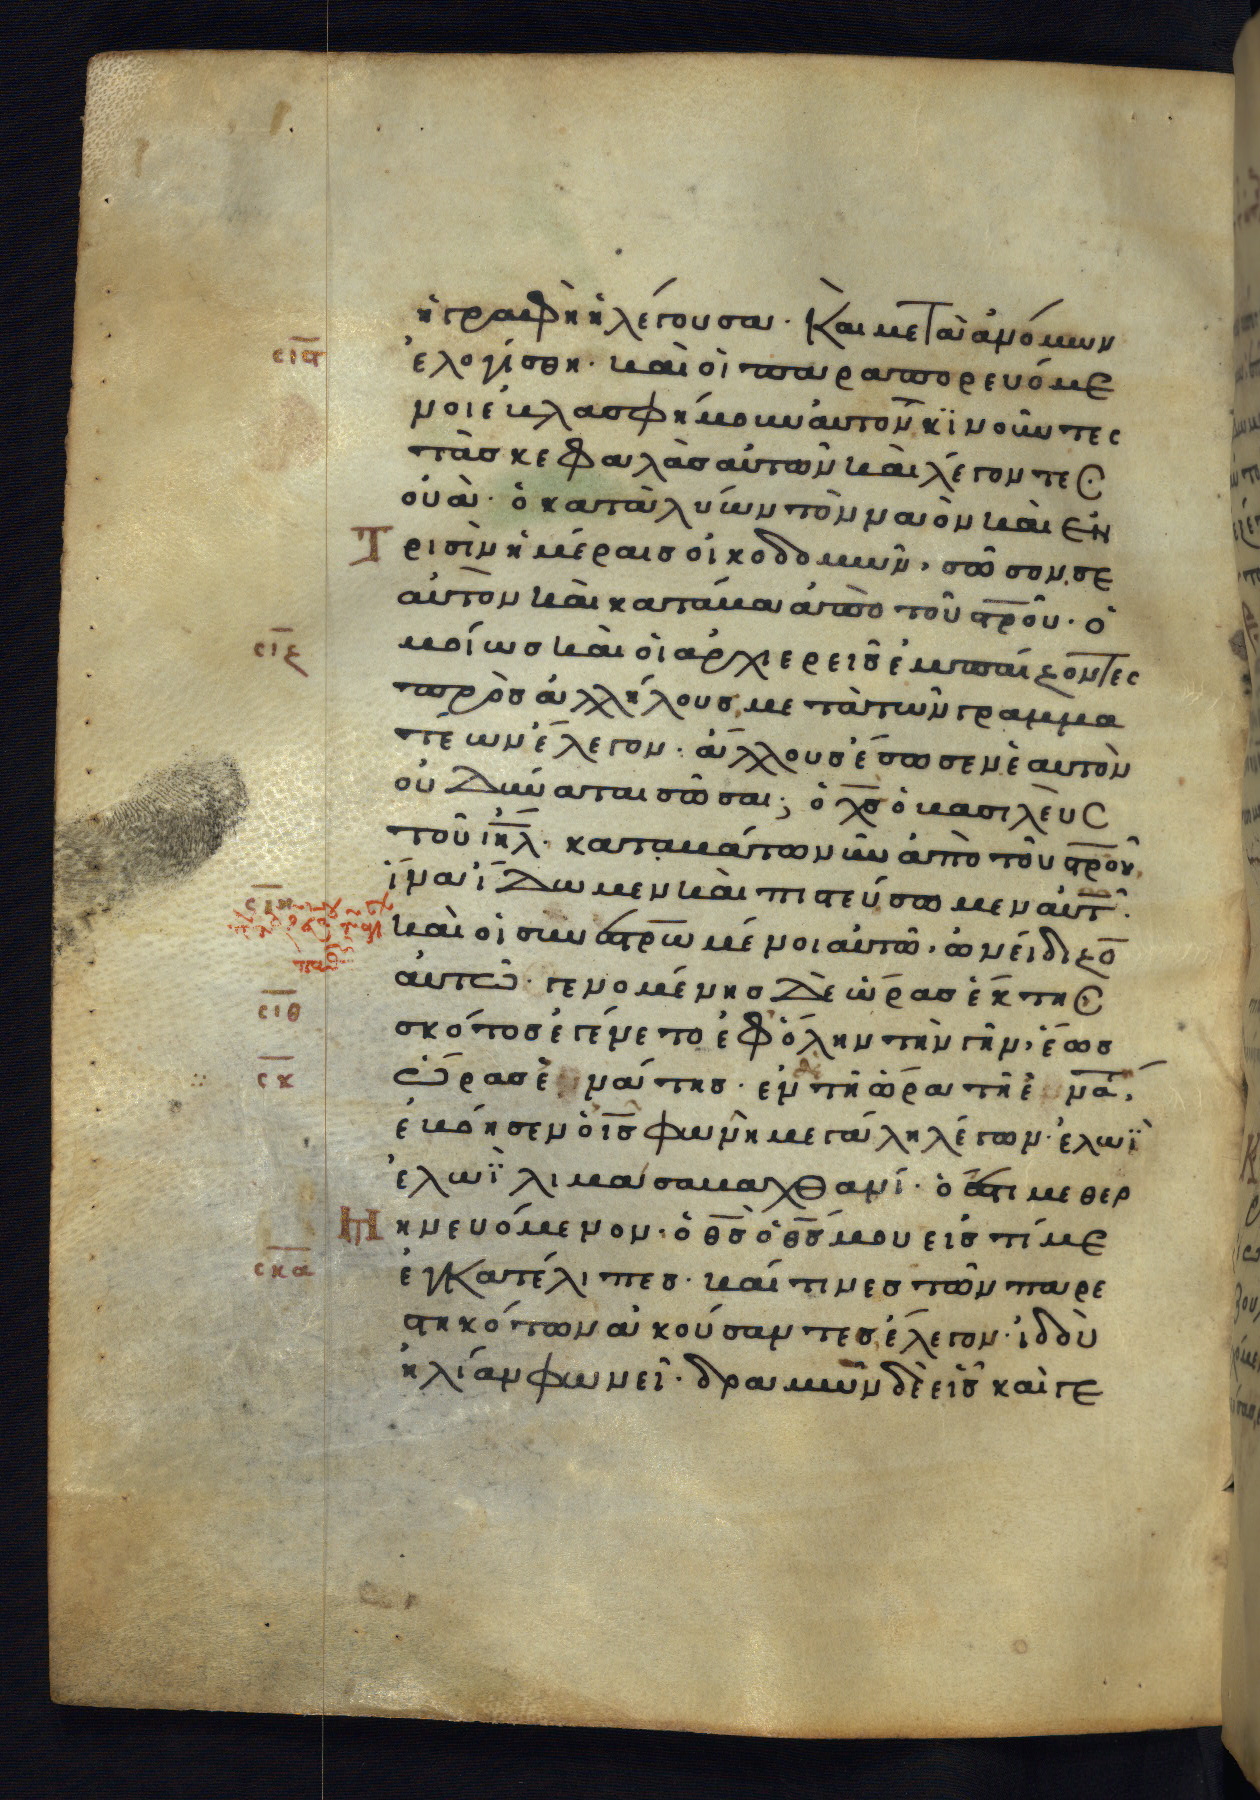 ἡ γραφὴ ἡ λέγουσα· Καὶ μετὰ ἀνόμων
ἐλογίσθη· καὶ οἱ παραπορευόμε
νοι ἐβλασφήμουν αὐτὸν κϊνοῦντες
τὰσ κεφαλὰσ αὐτῶν καὶ λέγοντες
οὐὰ· ὁ καταλύων τὸν ναὸν καὶ ἐν
Τρισὶν ἡμέραισ οἰκοδομῶν, σῶσον σε
αὐτὸν καὶ κατάβα ἀπὸ τοῦ σ̅ρ̅οῦ· ὁ
μοίωσ καὶ οἱ ἀρχιερεῖσ ἐμπαίζοντες
πρὸσ ἀλλήλουσ μετὰ τῶν γραμμα
τέων ἔλεγον· ἄλλουσ ἔσωσεν ἑαυτὸν
οὐ δύναται σῶσαι; ὁ χ̅σ̅ ὁ βασιλεὺς
τοῦ ι̅η̅λ̅· καταβάτω νῦν ἀπὸ τοῦ σ̅ρ̅οῦ,
ἵνα ἴδωμεν καὶ πιστεύσωμεν αὐτ̅·
καὶ οἱ συν σ̅ρ̅ωμένοι αὐτῶ, ὠνείδιζο̅
αὐτῶ· γενομένησ δὲ ὥρασ ἕκτης
σκότοσ ἐγένετο ἐφ ὅλην τὴν γῆν, ἕωσ
ὥρασ ἐνάτησ· ἐν τῆ ὥρα τῆ ἐνά,
ἐβόησεν ὁ ι̅σ̅ φωνῆ μεγάλη λέγων· ἐλωῒ
ἐλωῒ λιμα σαβαχθανί· ὅ ἐστι μεθερ
ηνευόμενον· ὁ θ̅σ̅ ὁ θ̅σ̅ μου εἰσ τί με
ἐγκατέλιπεσ· καί τινεσ τῶν παρε
στηκότων ἀκούσαντεσ ἔλεγον· ἰδοὺ
ἠλίαν φωνεῖ· δραμῶν δὲ εἷσ καὶ γε
σ̅ι̅ε̅
σ̅ι̅ζ̅
σ̅ι̅η̅
σ̅ι̅θ̅
σ̅κ̅
σ̅κ̅α̅